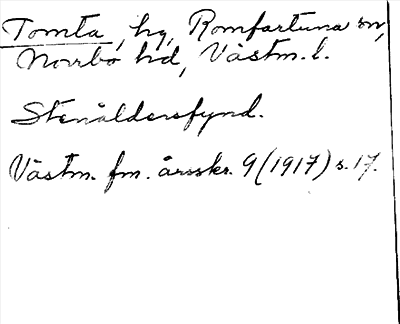 Tomta, hg, Romfartuna sn,
Norrbo hd, Västm. l.
Stenåldersfynd.
Västm. fm. årsskr. 9 (1917) s. 17.